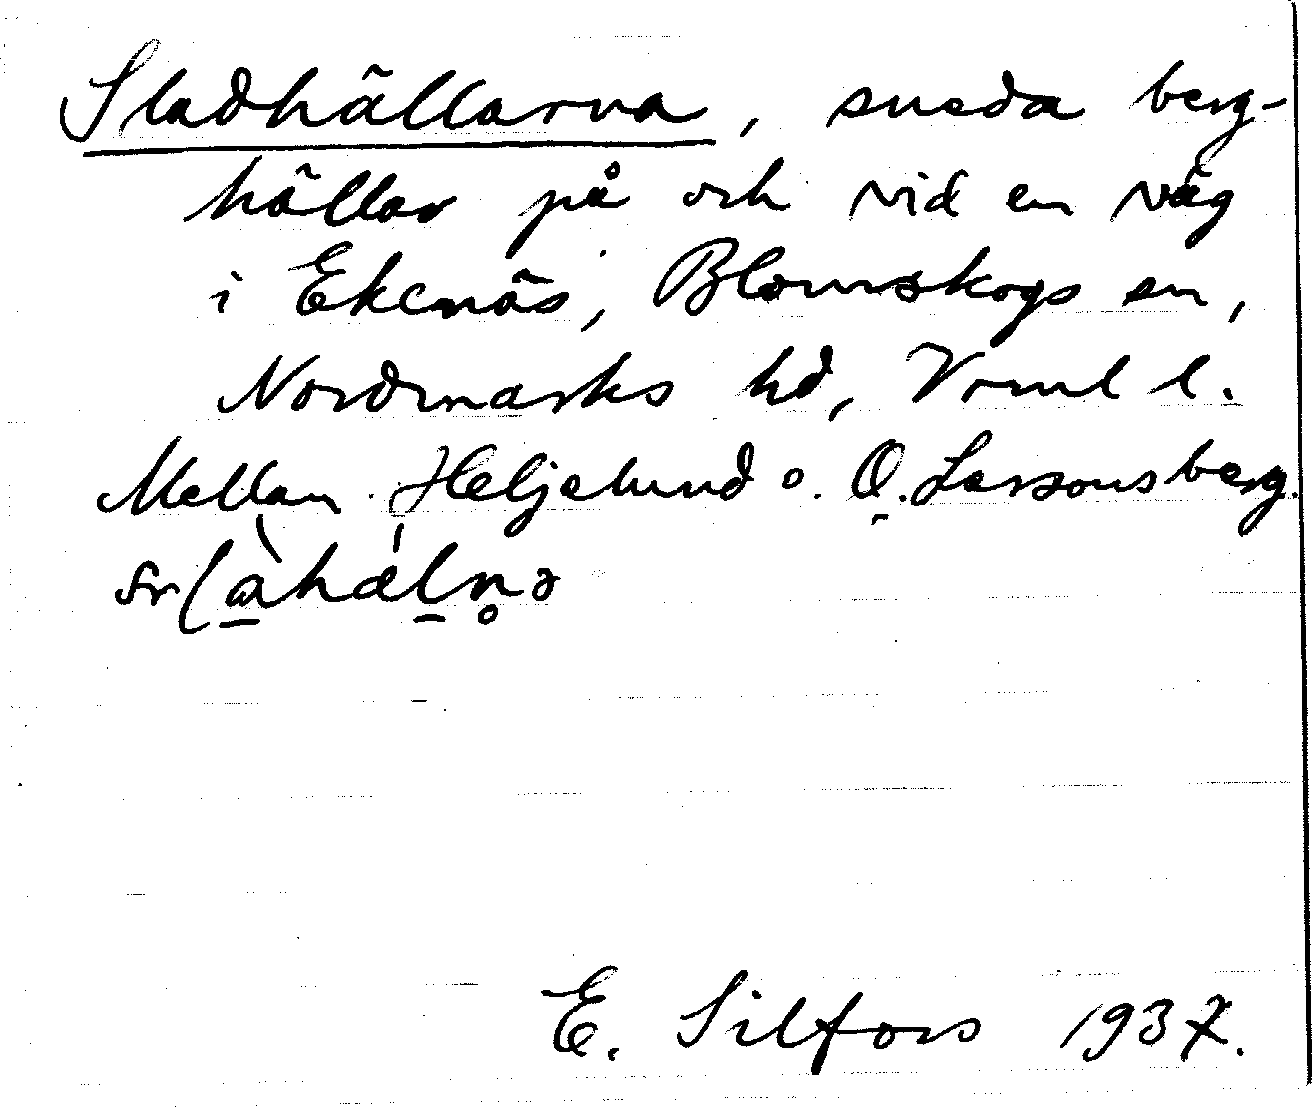 Sladhällarna, sneda berg-
hällar på och vid en väg
i Ekenäs, Blomskogs sn,
Nordmarks hd, Vrml l.
Mellan Heljelund o. O. Larssonsberg.
E. Silfors 1937.